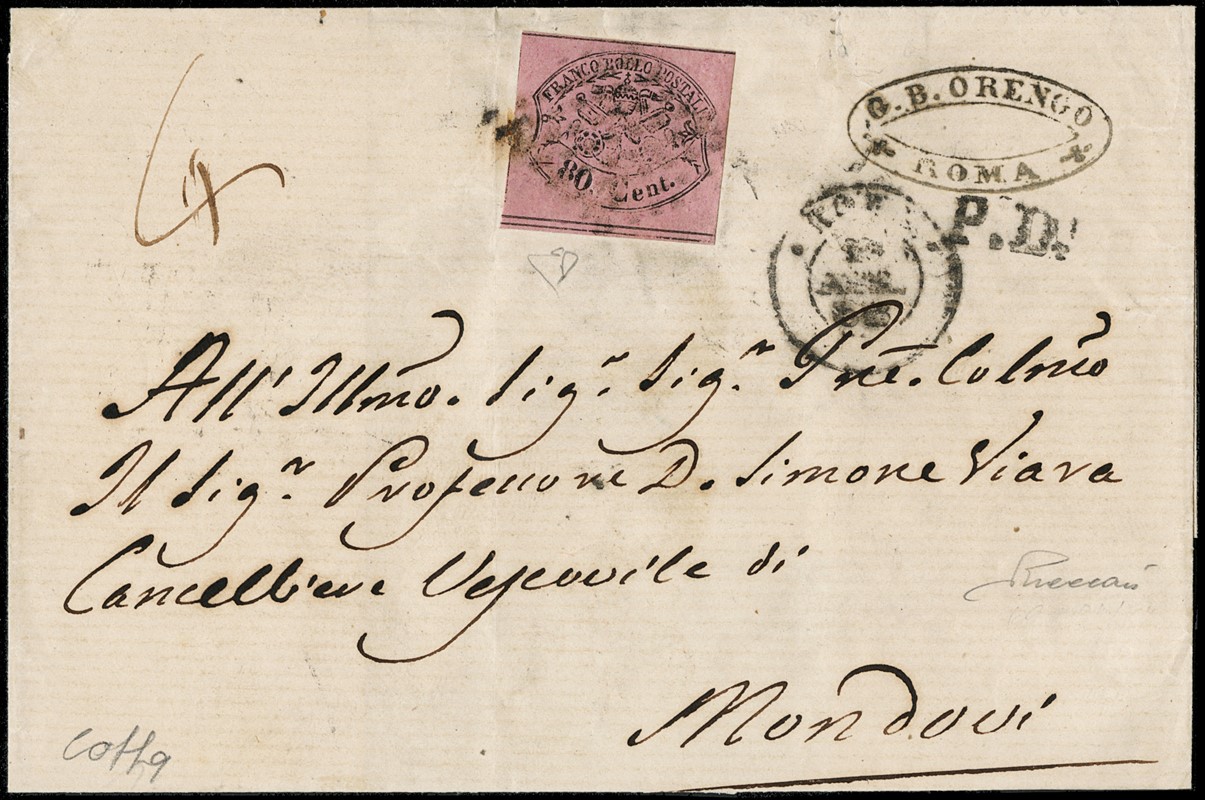 FRANCO BOLLO POSTALE
80 Cent.
G. B. ORENGO
ROMA
ROMA
P.D.
All' Illmo. Sigr. Sigr. Pne. Colmo
Il Sigr. Professore D. Simone Viara
Cancelliere Vescovile di
Mondovi